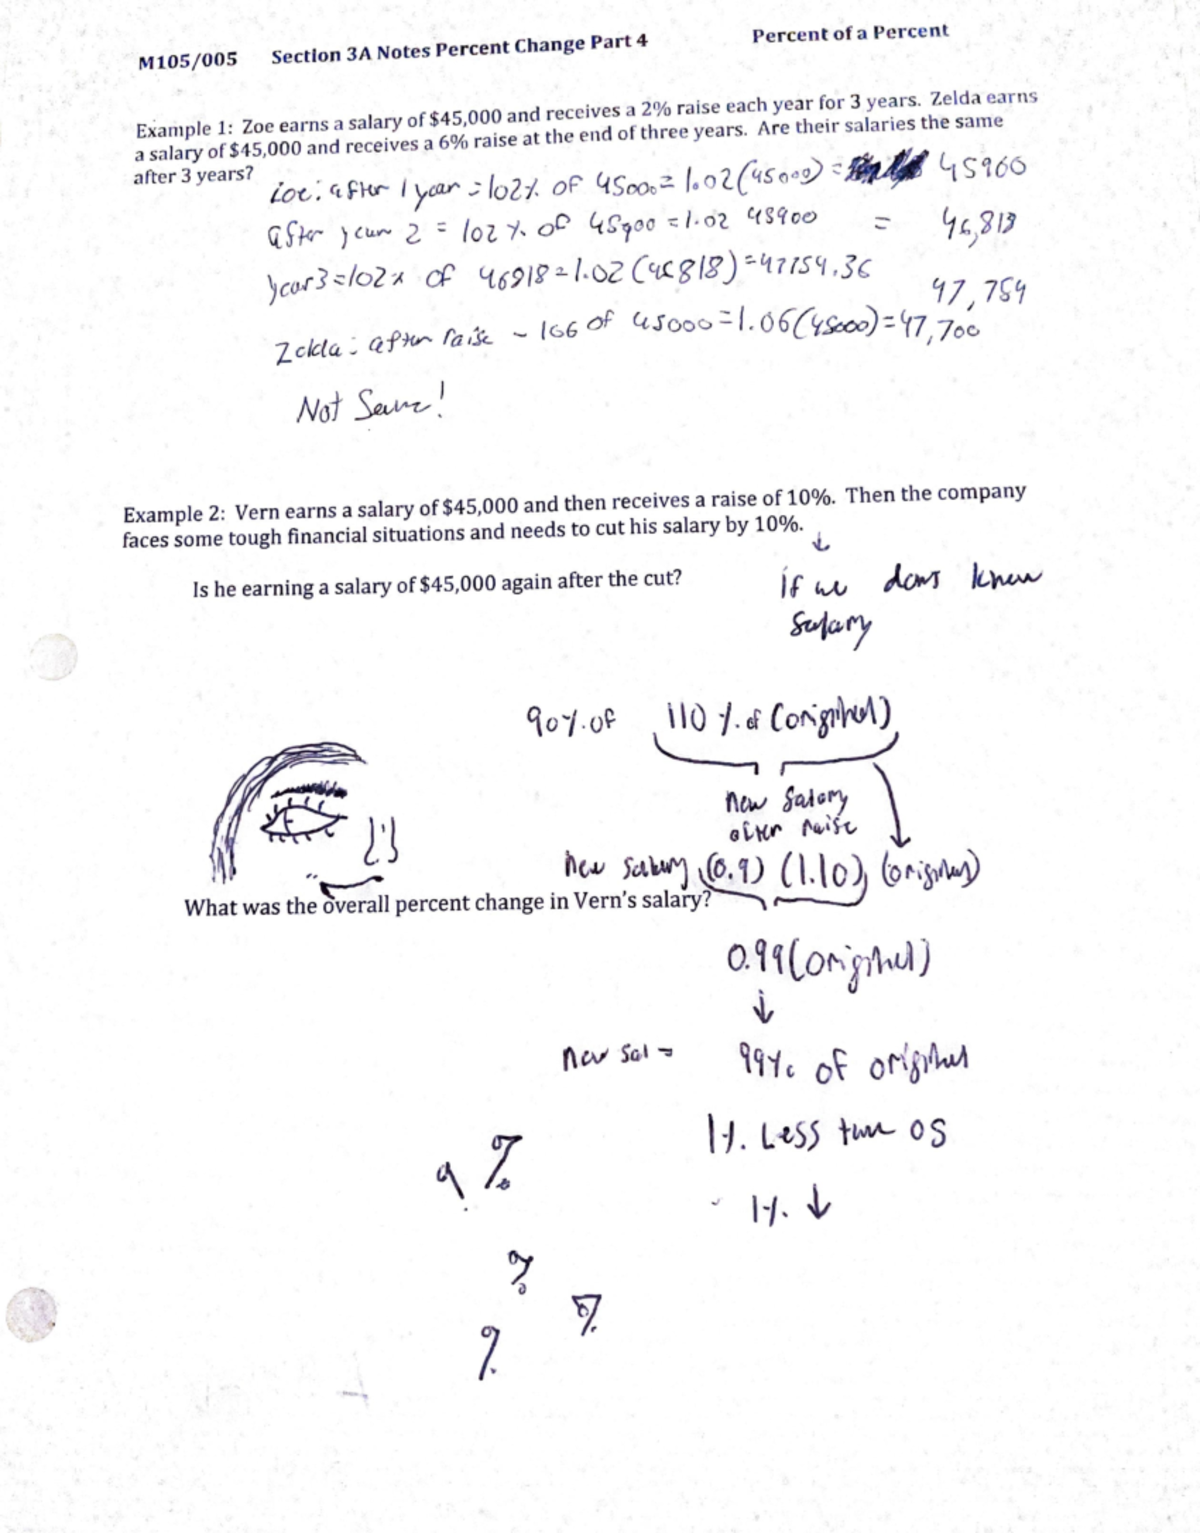 M105/005 Section 3A Notes Percent Change Part 4 Percent of a Percent
Example 1: Zoe earns a salary of $45,000 and receives a 2% raise each year for 3 years. Zelda earns
a salary of $45,000 and receives a 6% raise at the end of three years. Are their salaries the same
after 3 years?
Zoe: after 1 year = 102% of 45000 = 1.02(45000) = 45900
after year 2 = 102% of 45900 = 1.02 45900 = 46,818
year 3 = 102% of 46918 = 1.02(46818) = 47754.36
47,754
Zelda: after raise - 106 of 45000 = 1.06(45000) = 47,700
Not Same!
Example 2: Vern earns a salary of $45,000 and then receives a raise of 10%. Then the company
faces some tough financial situations and needs to cut his salary by 10%.
↓
Is he earning a salary of $45,000 again after the cut?
if we dont know
salary
90% of 110% of (original)
new salary
after raise
new salary (0.9) (1.10) (original)
What was the overall percent change in Vern's salary?
0.99(original)
↓
new sal = 99% of original
1% Less than OS
- 1% ↓
9 %
%
%
%